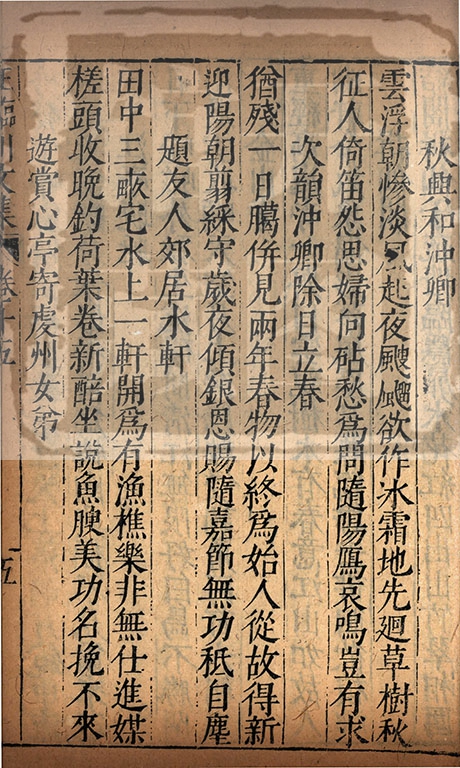 秋興和沖卿
雲浮朝慘淡風起夜颼飀欲作冰霜地先迴草樹秋
征人倚笛怨思婦向砧愁為問隨陽鴈哀鳴豈有求
次韻沖卿除日立春
猶殘一日臈併見兩年春物以終為始人從故得新
迎陽朝翦綵守歲夜傾銀恩賜隨嘉節無功秖自塵
題友人郊居水軒
田中三畝宅水上一軒開為有漁樵樂非無仕進媒
槎頭收晚釣荷葉卷新醅坐說魚腴美功名挽不來
遊賞心亭寄虔州女弟
王臨川文集 卷十五
十五